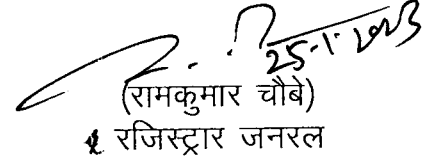 25-1-2023
(रामकुमार चौबे)
रजिस्ट्रार जनरल